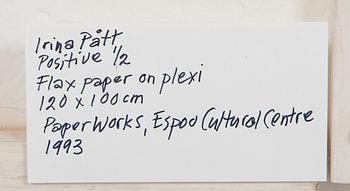 Irina Pått
Positive 1/2
Flax paper on plexi
120 x 100 cm
PaperWorks, Espoo Cultural Centre
1993